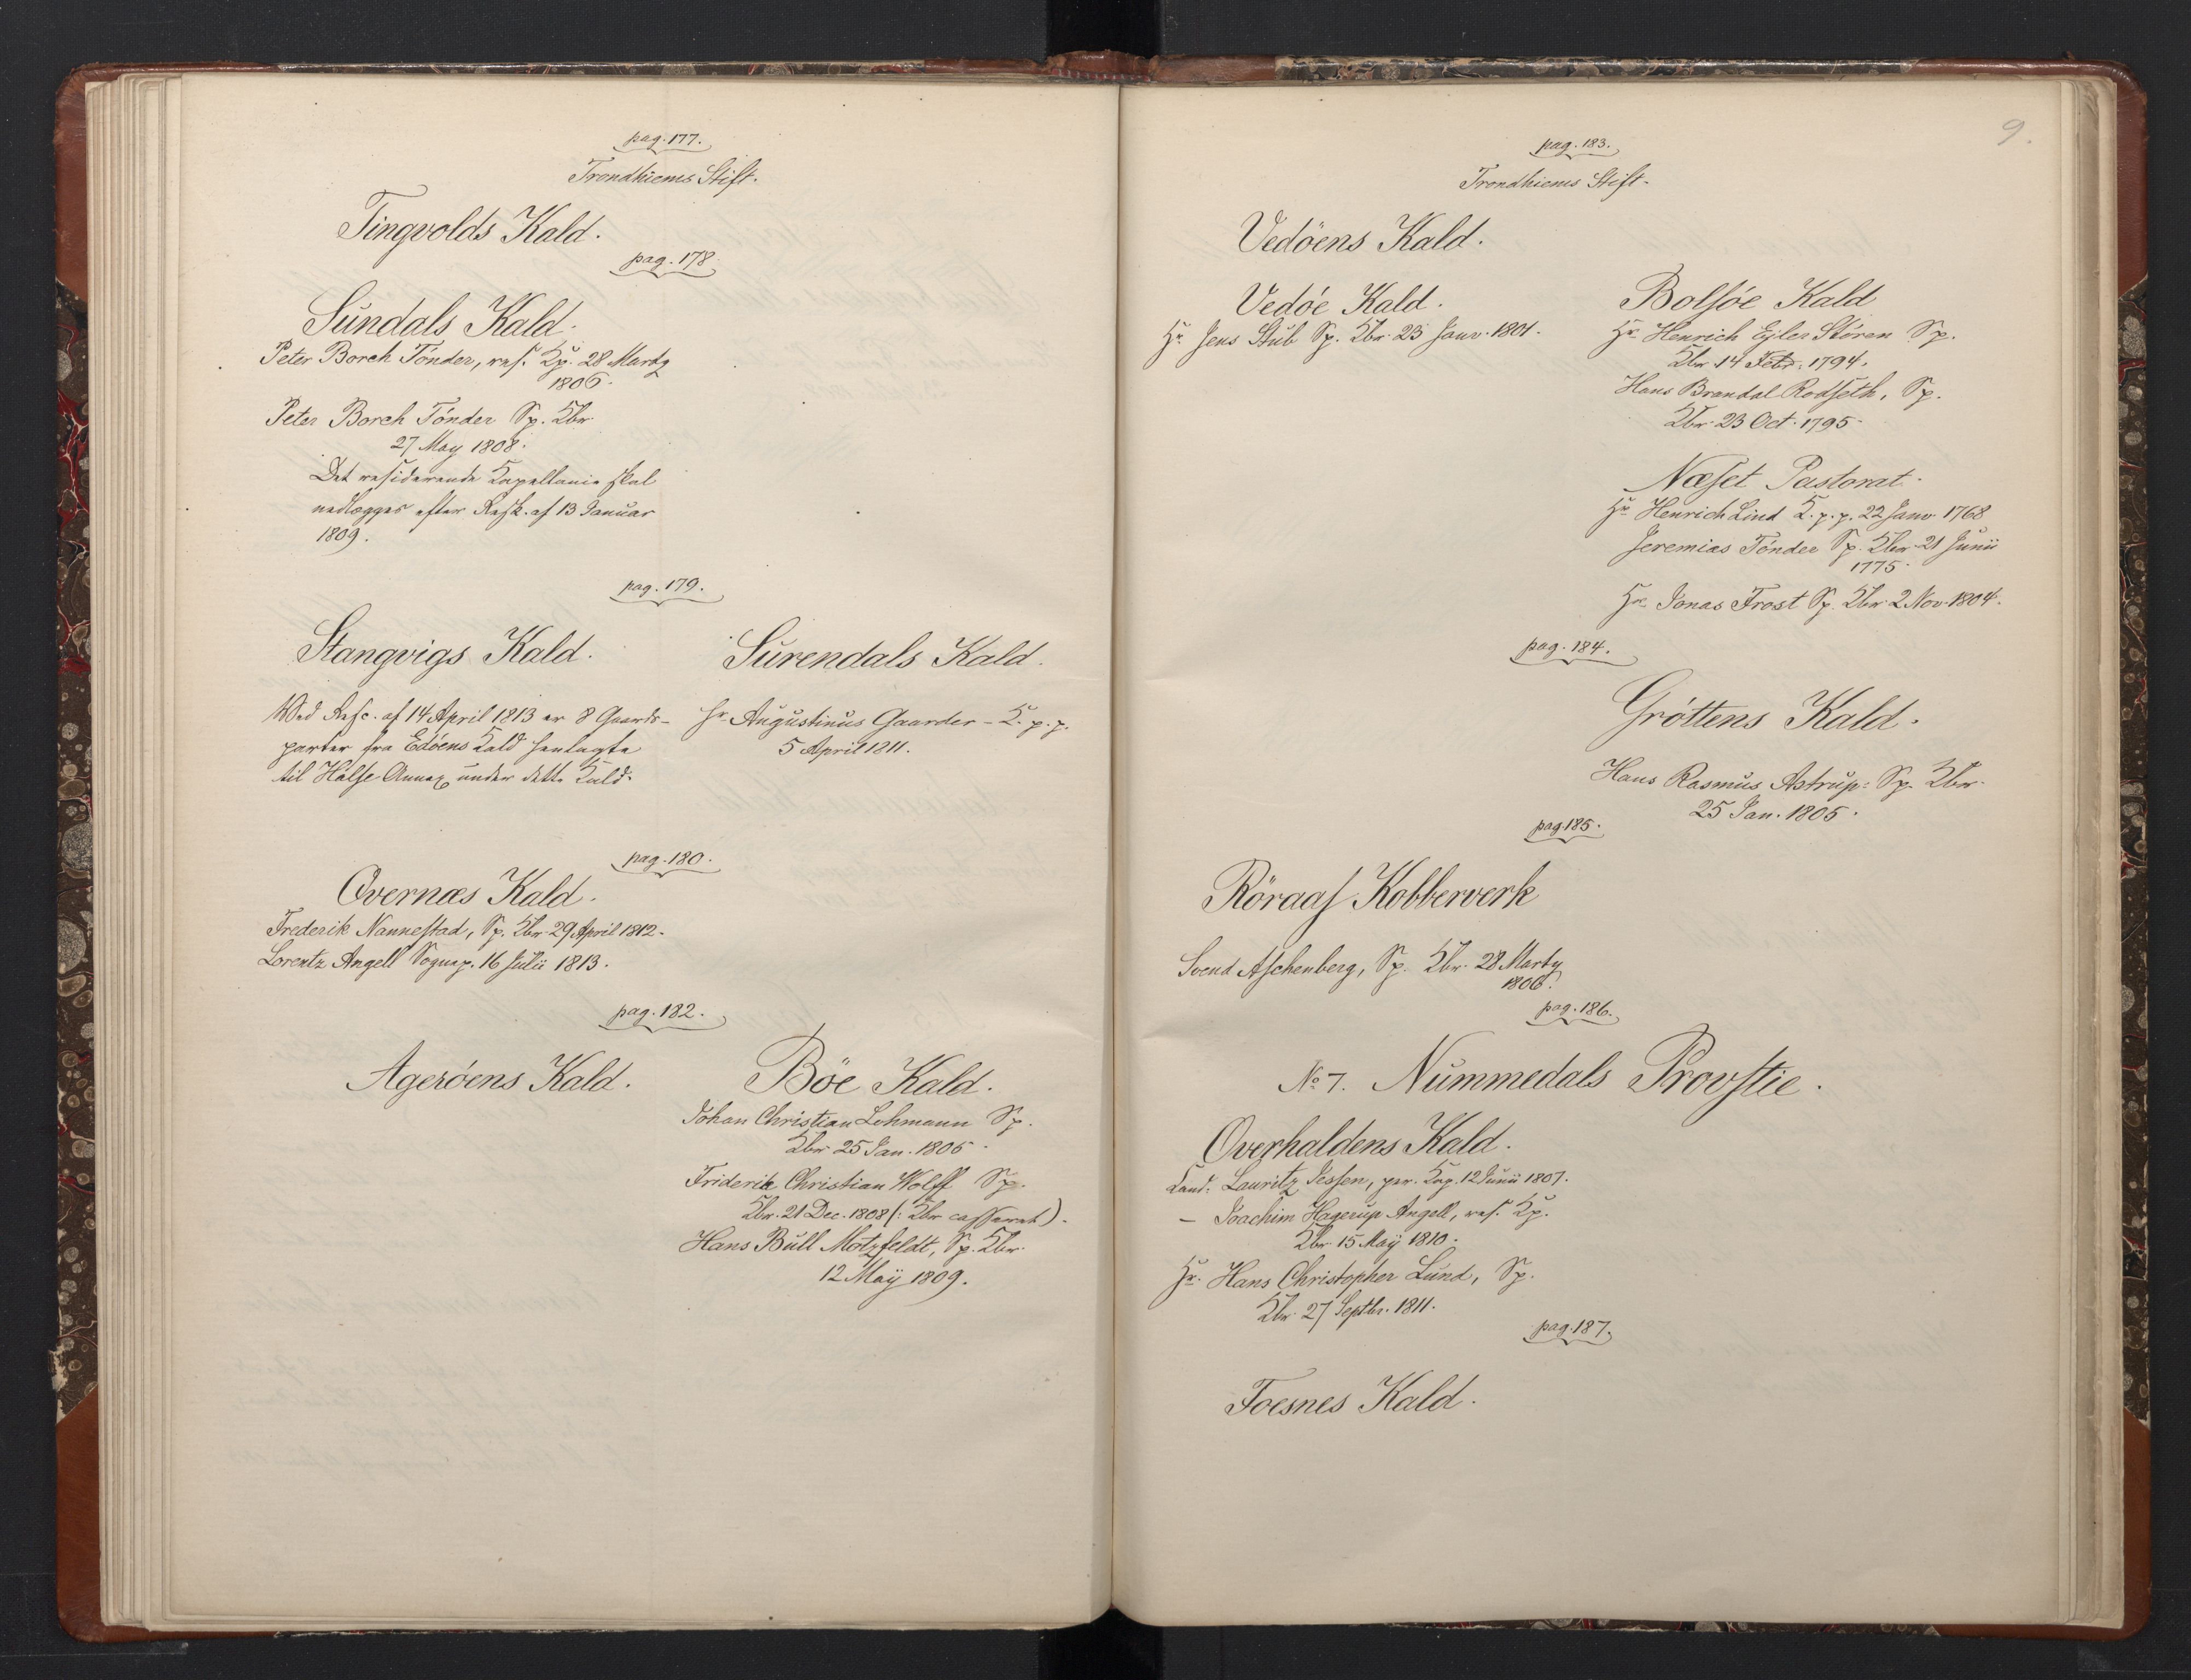 pag. 177.
Trondhiems Stift.
Tingvolds Kald.
pag. 178.
Sundals Kald.
Peter Borch Tönder, res. Kp. 28 Marty
1806.
Peter Borch Tönder Sp. Kbr.
27 May 1808.
Det residerende Kapellanie skal
nedlægges efter Resk. af 13 Januar
1809.
pag. 179.
Stangvigs Kald.
Ved Resc. af 14 April 1813 er 8 Gaards-
parter fra Edöens Kald henlagte
til Halse Annex under dette Kald.
Surendals Kald.
Hr. Augustinus Gaarder - K. p. p.
5 April 1811.
pag. 180.
Qvernæs Kald.
Frederik Nannestad, Sp. Kbr. 29 April 1812.
Lorentz Angell Sognep. 16 Julii 1813.
pag. 182.
Ageröens Kald.
Böe Kald.
Johan Christian Lohmann Sp.
Kbr. 25 Jan. 1805.
Friderik Christian Wolff Sp.
Kbr. 21 Dec. 1808 (: Kbr casseret).
Hans Bull Motzfeldt, Sp. Kbr.
12 Maÿ 1809.
9.
pag. 183.
Trondhiems Stift.
Vedöens Kald.
Vedöe Kald.
Hr. Jens Stub Sp. Kbr. 23 Janv. 1801.
Bolsöe Kald
Hr. Henrich Ejler Stören Sp.
Kbr. 14 Febr. 1794.
Hans Brandal Rodseth, Sp.
Kbr. 23 Oct. 1795.
Næset Pastorat.
Hr. Henrich Lind K. p. p. 22 Janv 1768
Jeremias Tönder Sp. Kbr. 21 Junii
1775.
Hr. Jonas Frost Sp. Kbr. 2 Nov. 1804.
pag. 184.
Gröttens Kald.
Hans Rasmus Astrup: Sp. Kbr.
25 Jan. 1805.
pag. 185.
Röraas Kobberverk
Svend Aschenberg, Sp. Kbr. 28 Marty
1806.
pag. 186.
No. 7. Nummedals Provstie.
Overhaldens Kald.
Cand. Lauritz Jessen, per. Kap. 12 Junii 1807.
- Joachim Hagerup Angell, res. Kp.
Kbr. 15 Maÿ 1810.
Hr. Hans Christopher Lund, Sp.
Kbr. 27 Septbr. 1811.
pag. 187.
Foesnes Kald.